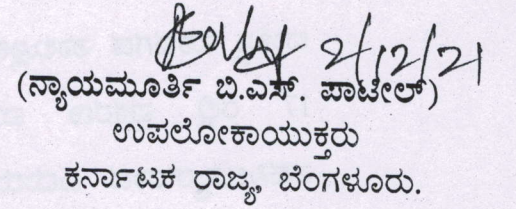 2/12/21
(ನ್ಯಾಯಮೂರ್ತಿ ಬಿ.ಎಸ್. ಪಾಟೀಲ್)
ಉಪಲೋಕಾಯುಕ್ತರು
ಕರ್ನಾಟಕ ರಾಜ್ಯ, ಬೆಂಗಳೂರು.